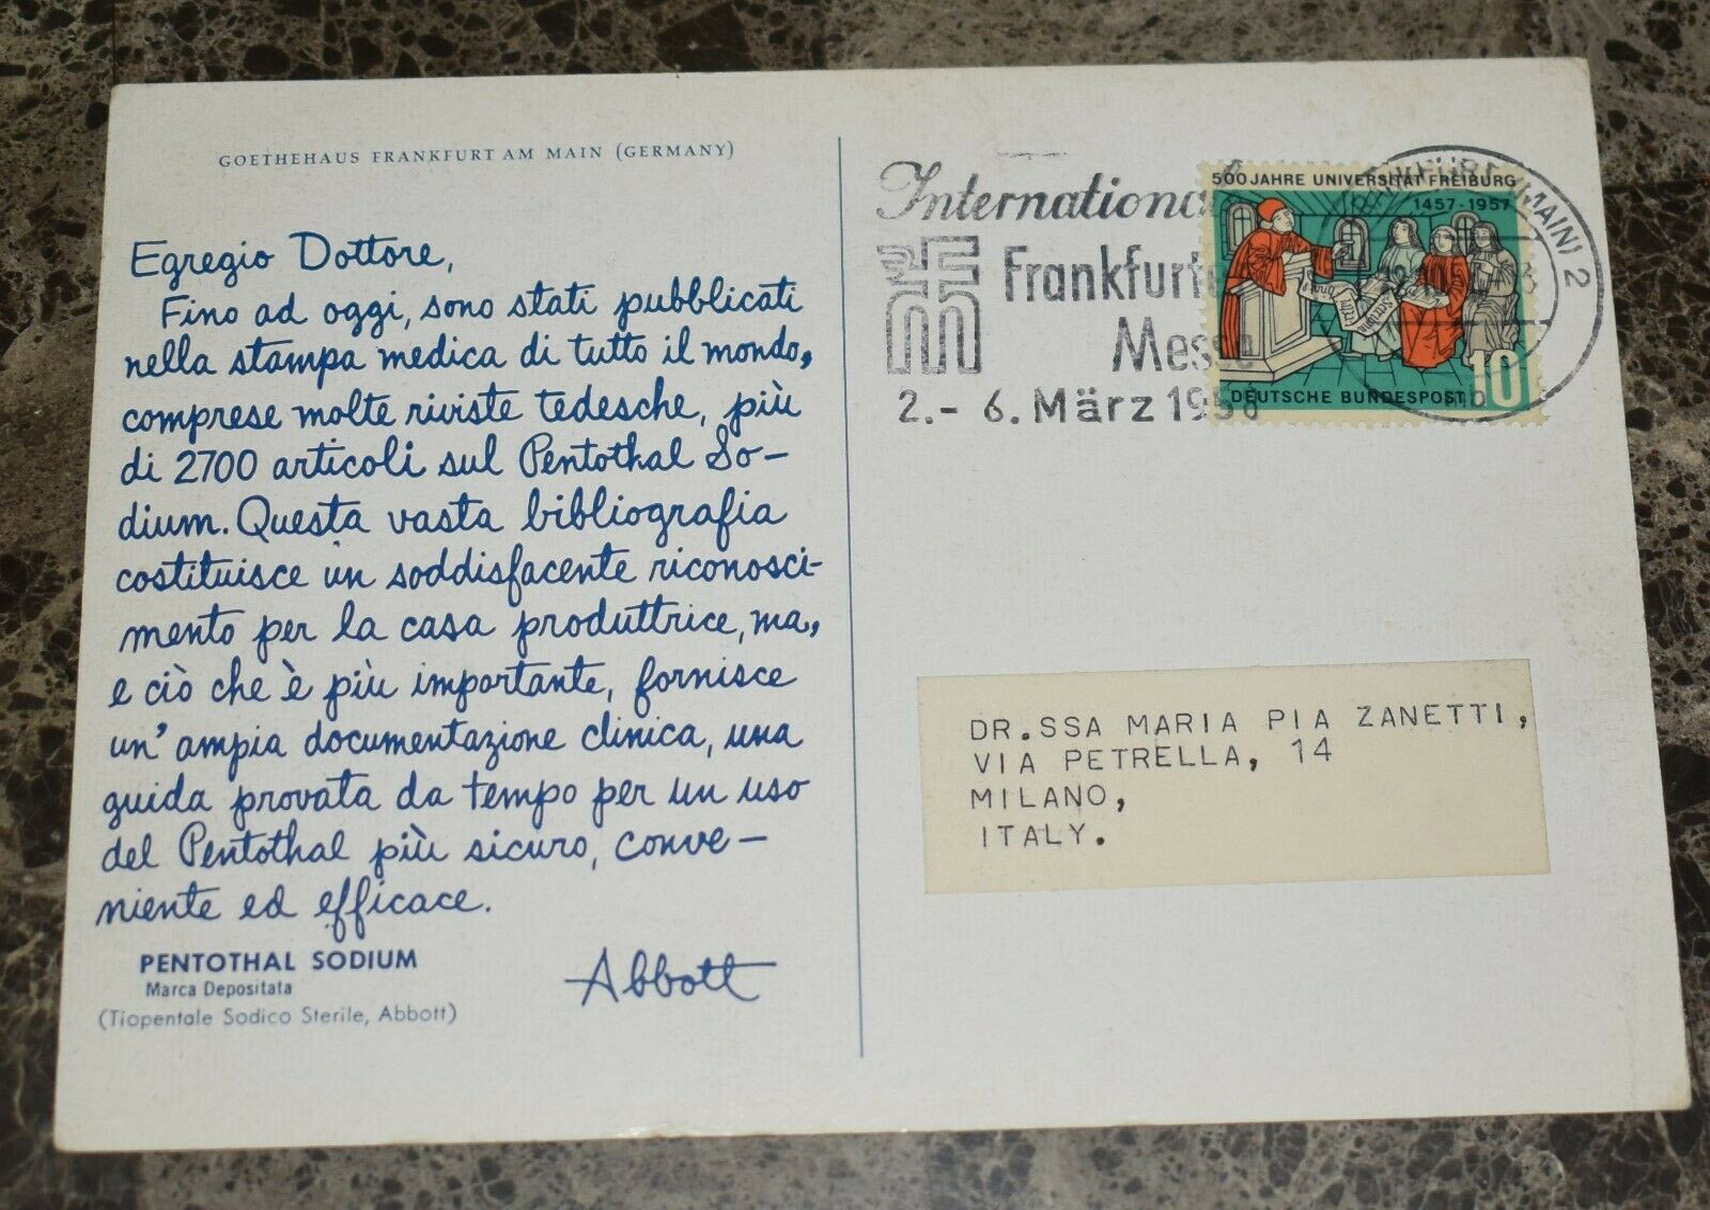 GOETHEHAUS FRANKFURT AM MAIN (GERMANY)
Egregio Dottore,
Fino ad oggi, sono stati pubblicati
nella stampa medica di tutto il mondo,
comprese molte riviste tedesche, più
di 2700 articoli sul Pentothal So-
dium. Questa vasta bibliografia
costituisce un soddisfacente riconosci-
mento per la casa produttrice, ma,
e ciò che è più importante, fornisce
un' ampia documentazione clinica, una
guida provata da tempo per un uso
del Pentothal più sicuro, conve-
niente ed efficace.
PENTOTHAL SODIUM
Marca Depositata
(Tiopentale Sodico Sterile, Abbott)
Abbott
Internationa
Frankfurt
Messe
2.- 6. März 1958
500 JAHRE UNIVERSITÄT FREIBURG
1457-1957
DEUTSCHE BUNDESPOST 10
(MAIN) 2
DR.SSA MARIA PIA ZANETTI,
VIA PETRELLA, 14
MILANO,
ITALY.